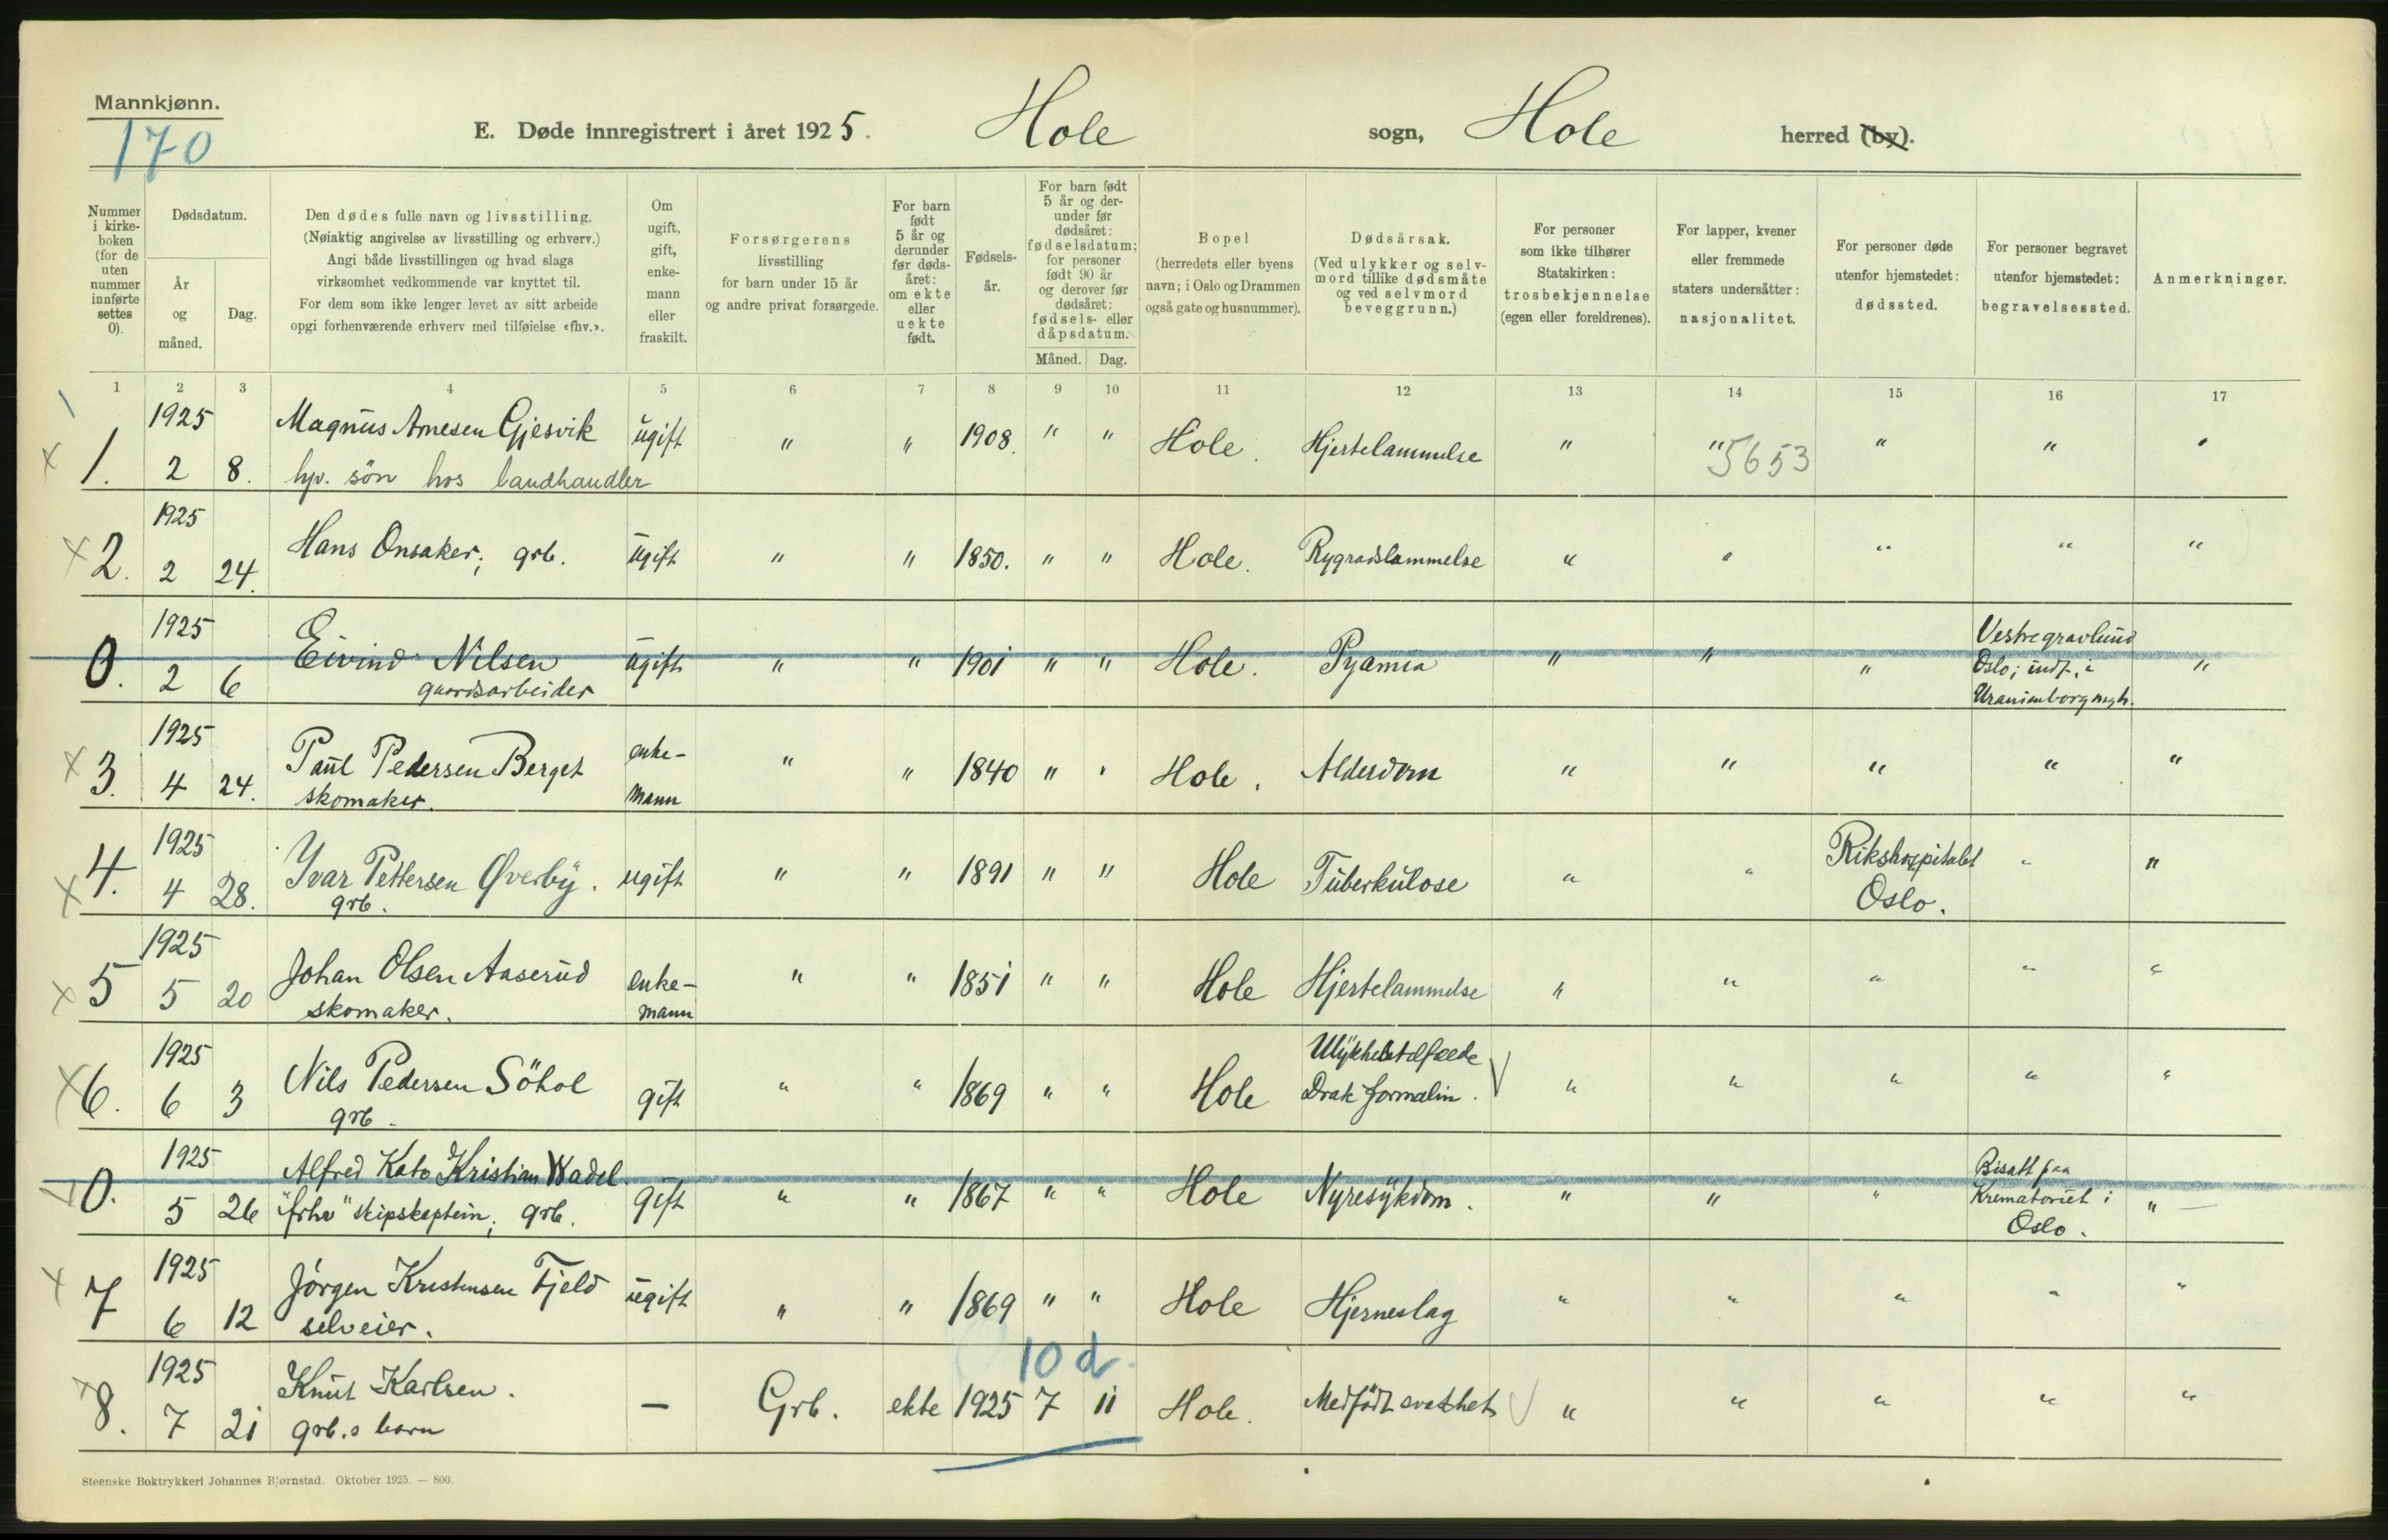 Mannkjønn.
170
E. Døde innregistrert i året 1925. Hole sogn, Hole herred (by).
Nummer i kirkeboken (for de uten nummer innførte settes 0).
Dødsdatum.
År og måned.
Dag.
Den dødes fulle navn og livsstilling.
(Nøiaktig angivelse av livsstilling og erhverv.)
Angi både livsstillingen og hvad slags
virksomhet vedkommende var knyttet til.
For dem som ikke lenger levet av sitt arbeide
opgi forhenværende erhverv med tilføielse «fhv.».
Om ugift, gift, enkemann eller fraskilt.
Forsørgerens livsstilling
for barn under 15 år
og andre privat forsørgede.
For barn født 5 år og derunder før dødsåret: om ekte eller uekte født.
Fødselsår.
For barn født 5 år og derunder før dødsåret: fødselsdatum; for personer født 90 år og derover før dødsåret: fødsels- eller dåpsdatum.
Måned. Dag.
Bopel
(herredets eller byens
navn; i Oslo og Drammen
også gate og husnummer).
Dødsårsak.
(Ved ulykker og selvmord tillike dødsmåte og ved selvmord beveggrunn.)
For personer
som ikke tilhører
Statskirken:
trosbekjennelse
(egen eller foreldrenes).
For lapper, kvener
eller fremmede
staters undersåtter:
nasjonalitet.
For personer døde
utenfor hjemstedet:
dødssted.
For personer begravet
utenfor hjemstedet:
begravelsessted.
Anmerkninger.
1 2 3 4 5 6 7 8 9 10 11 12 13 14 15 16 17
1. 1925 2 8. Magnus Arnesen Gjesvik ugift " " 1908. " " Hole. Hjertelammelse " " 5653 " " "
hjv. sön hos landhandler
2. 1925 2 24. Hans Onsaker; grb. ugift " " 1850. " " Hole. Rygradslammelse " " " " "
0. 1925 2 6 Eivind Nilsen ugift " " 1901 " " Hole. Pyämia " " " Vestre gravlund "
gaardsarbeider Oslo; indf. i
Uranienborg mgh.
3. 1925 4 24. Paul Pedersen Berget enke- " " 1840 " " Hole. Alderdom " " " " "
skomaker. mann
4. 1925 4 28. Yvar Pettersen Øverby. ugift " " 1891 " " Hole Tuberkulose " " Rikshospitalet " "
grb. Oslo.
5 1925 5 20 Johan Olsen Aaserud enke- " " 1851 " " Hole Hjertelammelse " " " " "
skomaker. mann
6. 1925 6 3 Nils Pedersen Söhol gift " " 1869 " " Hole Ulykkestilfælde " " " " "
grb. Drak formalin.
0. 1925 5 26 Alfred Kato Kristian Wadel. gift " " 1867 " " Hole Nyresykdom. " " " Bisatt paa "
"frhv" skipskaptein; grb. Krematoriet i
Oslo.
7 1925 6 12 Jörgen Kristensen Fjeld ugift " " 1869 " " Hole Hjerneslag " " " " "
selveier.
10 d.
8. 1925 7 21 Knut Karlsen. – Grb. ekte 1925 7 11 Hole. Medfödt svakhet " " " " "
grb.s barn
Steenske Boktrykkeri Johannes Bjørnstad. Oktober 1925. — 800.